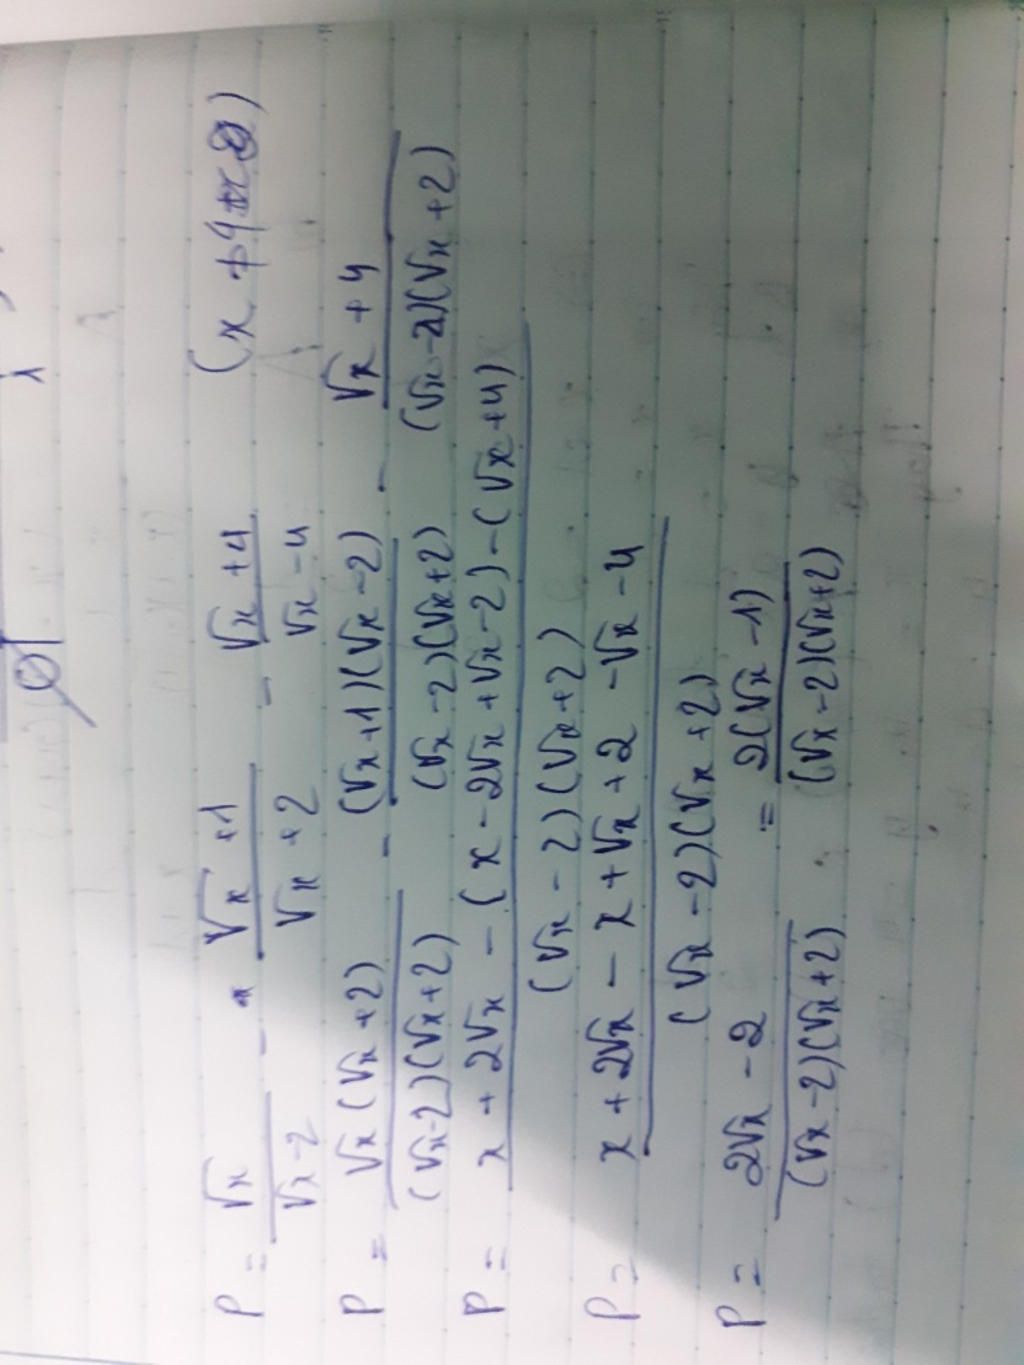 P = √x / (√x - 2) - (√x + 1) / (√x + 2) - (√x + 4) / (√x - 4) (x
P = √x(√x + 2) / (√x - 2)(√x + 2) - (√x + 1)(√x - 2) / (√x - 2)(√x + 2) - √x + 4 / (√x - 2)(√x + 2)
P = x + 2√x - (x - 2√x + √x - 2) - (√x + 4) / (√x - 2)(√x + 2)
P = x + 2√x - x + √x + 2 - √x - 4 / (√x - 2)(√x + 2)
P = 2√x - 2 / (√x - 2)(√x + 2) = 2(√x - 1) / (√x - 2)(√x + 2)